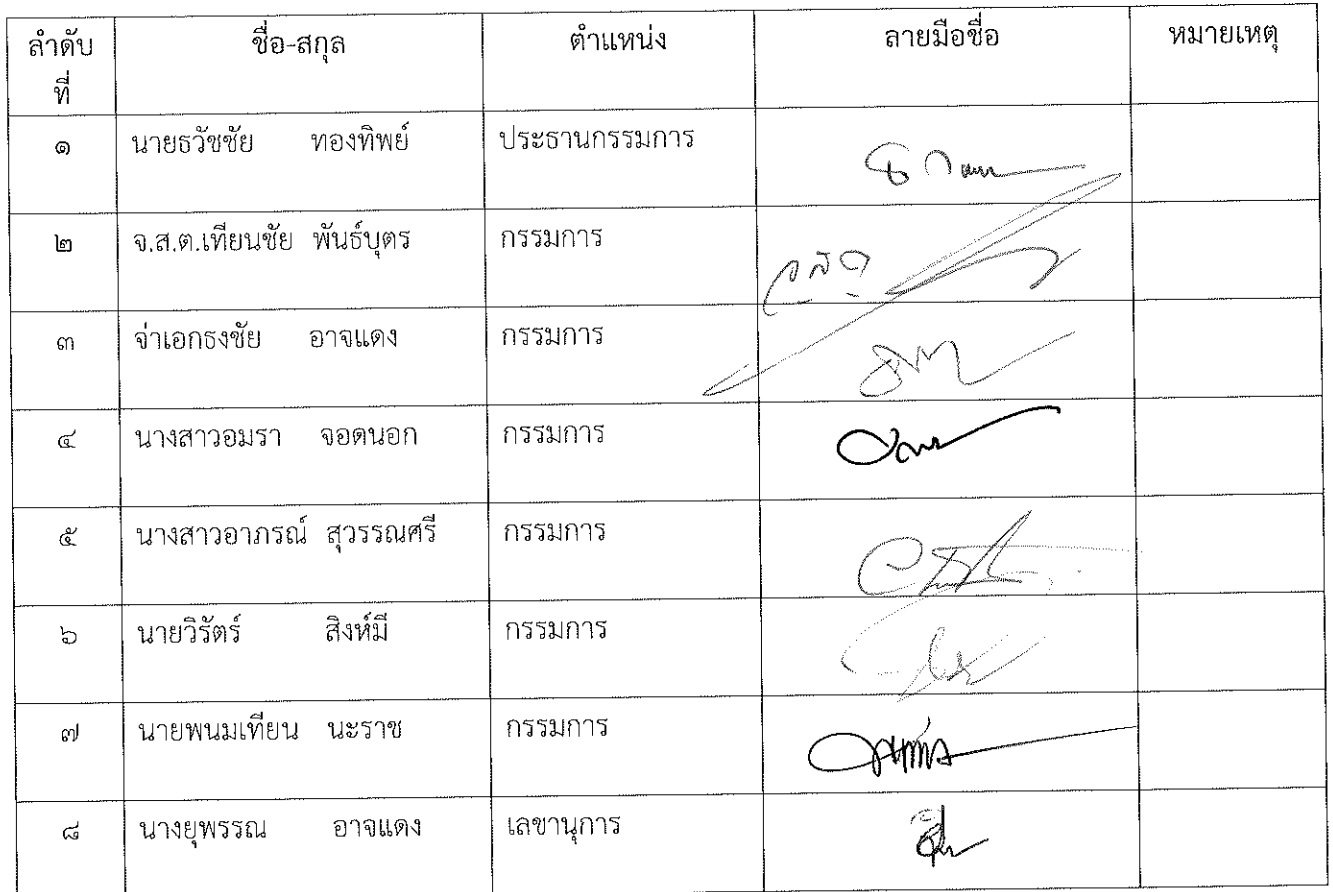 ลำดับที่ ชื่อ-สกุล ตำแหน่ง ลายมือชื่อ หมายเหตุ
๑ นายธวัชชัย ทองทิพย์ ประธานกรรมการ
๒ จ.ส.ต.เทียนชัย พันธ์บุตร กรรมการ จสต
๓ จ่าเอกธงชัย อาจแดง กรรมการ
๔ นางสาวอมรา จอดนอก กรรมการ
๕ นางสาวอาภรณ์ สุวรรณศรี กรรมการ
๖ นายวิรัตร์ สิงห์มี กรรมการ
๗ นายพนมเทียน นะราช กรรมการ
๘ นางยุพรรณ อาจแดง เลขานุการ